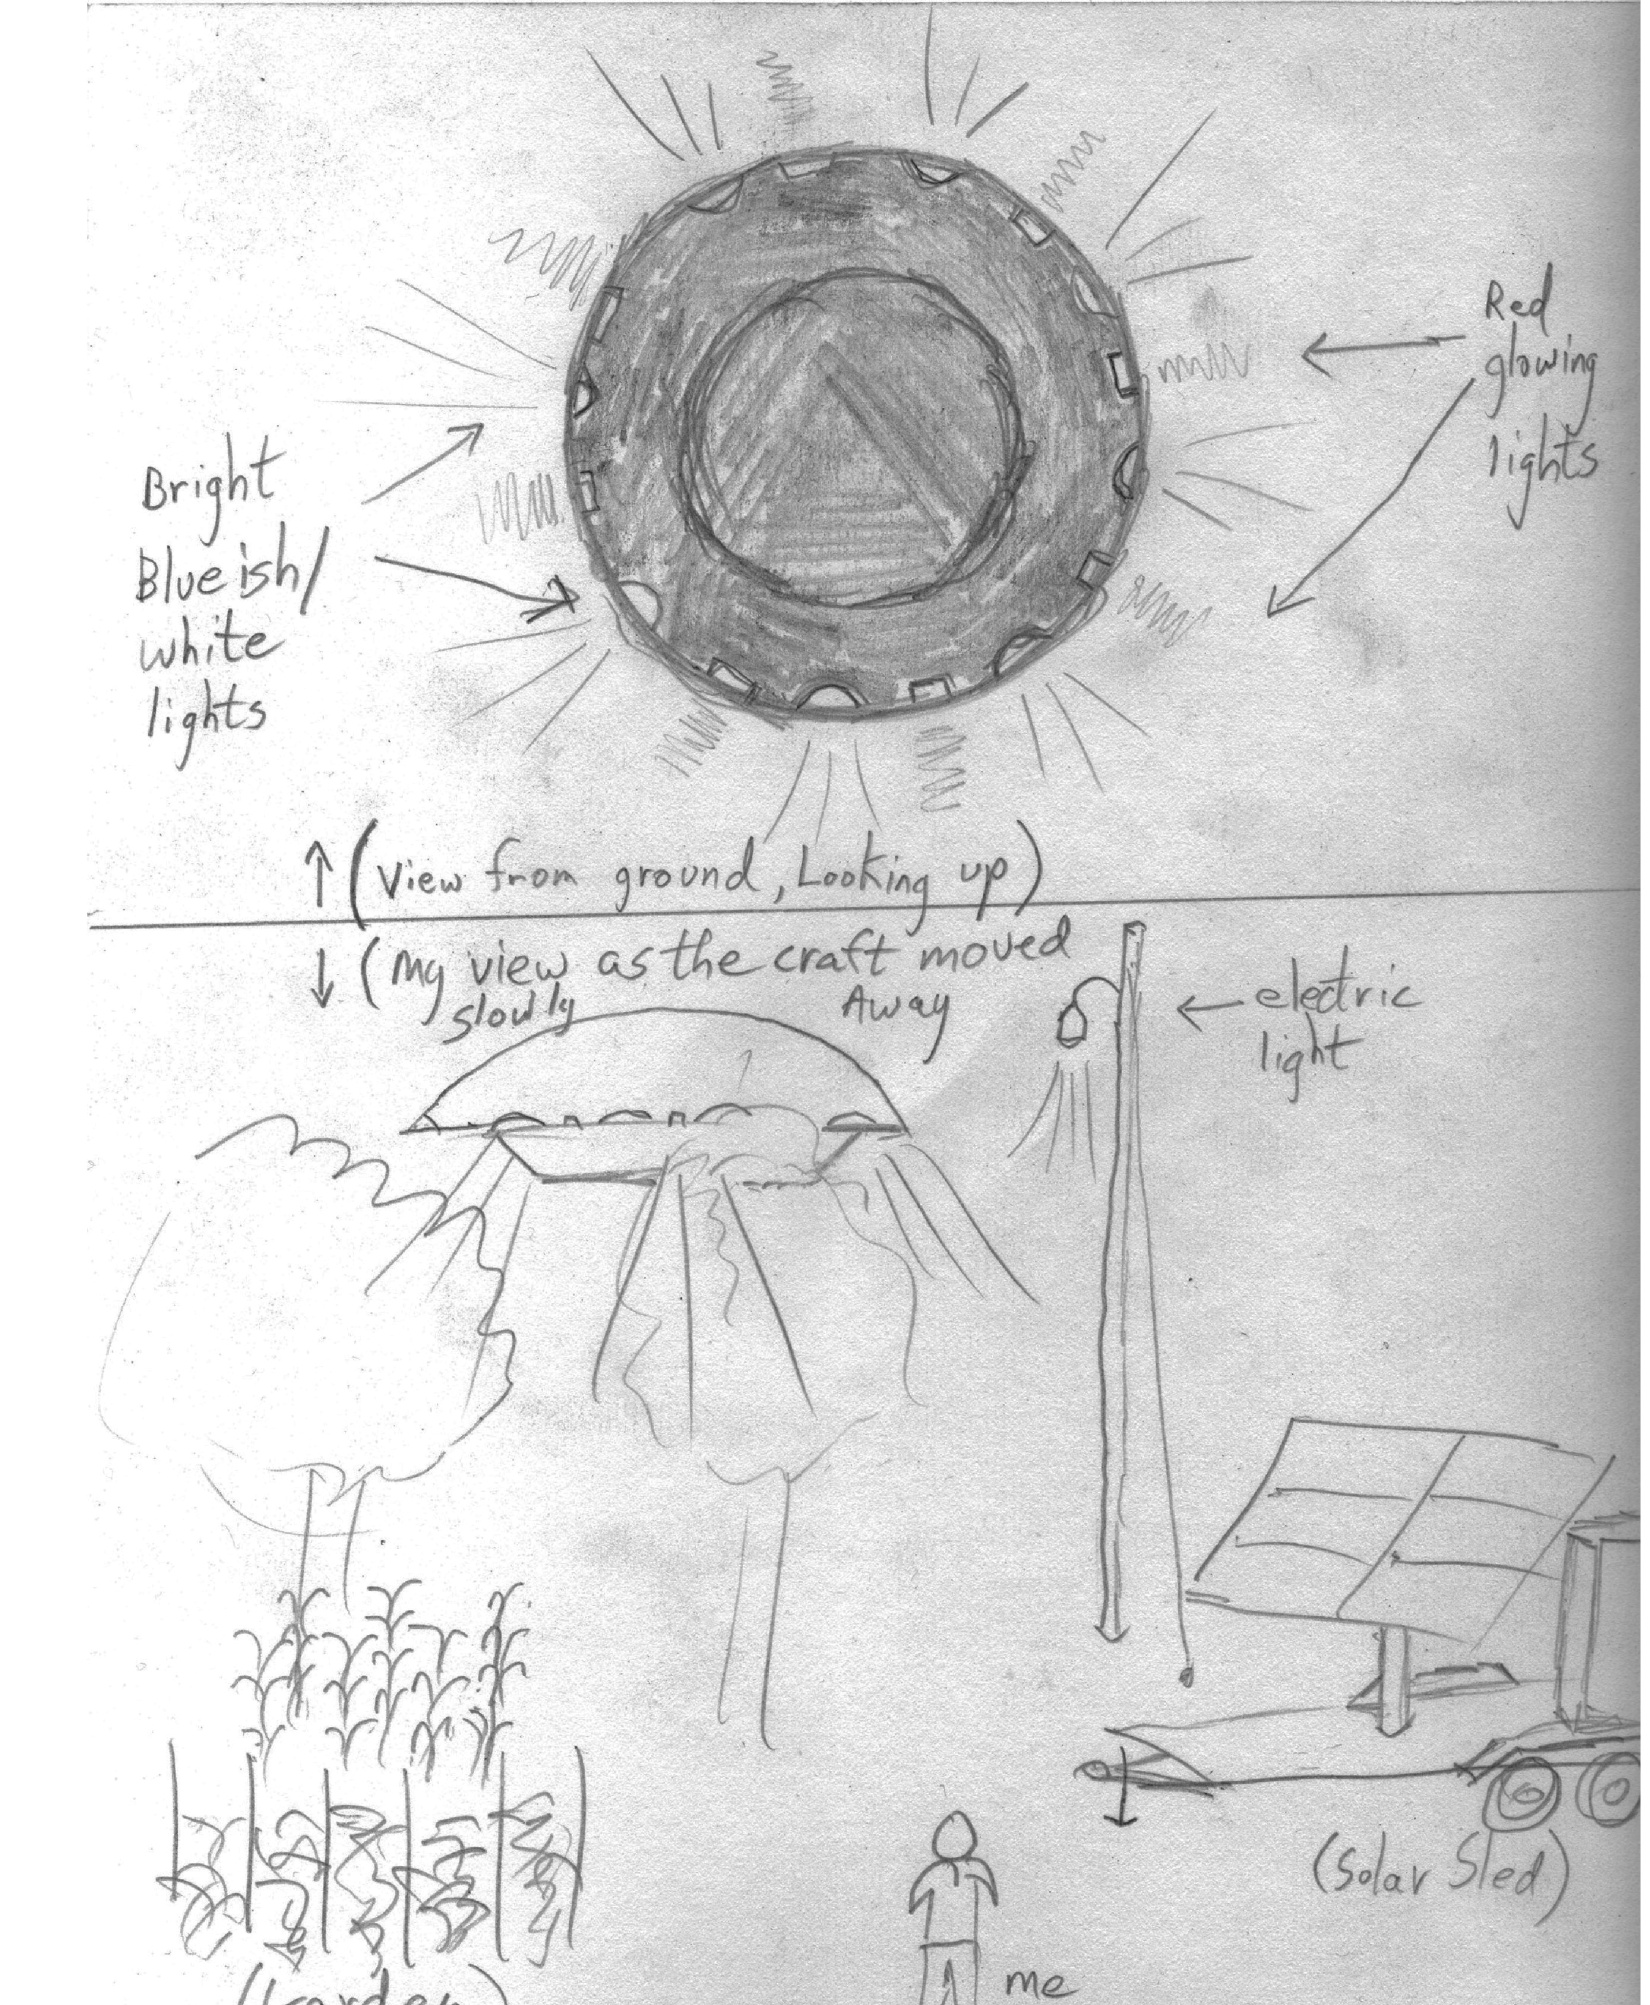 Red
glowing
lights
Bright
Blueish/
white
lights
↑ (View from ground, Looking up)
↓ (My view as the craft moved
slowly Away
← electric
light
(Solar Sled)
me
(Garden)